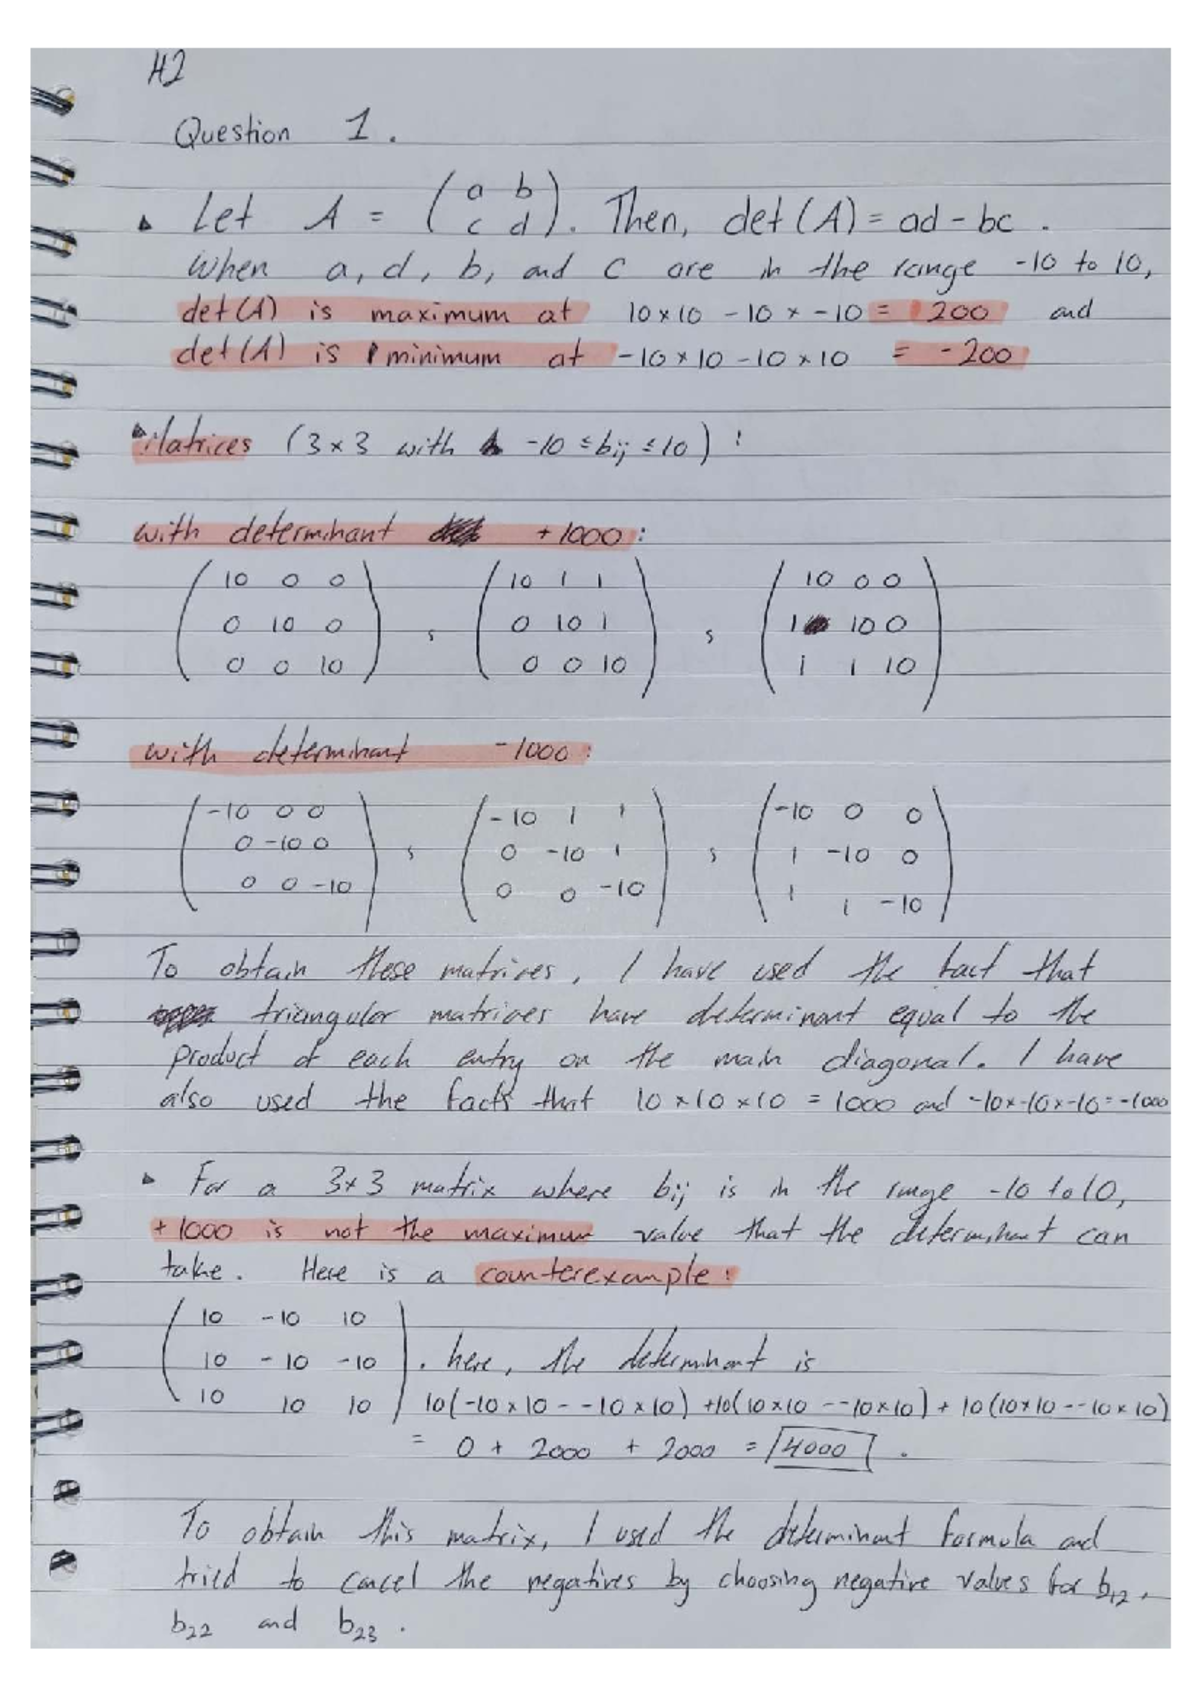 H2
Question 1.
Let A = ( a b
c d ). Then, det (A) = ad - bc .
When a, d, b, and c are in the range -10 to 10,
det (A) is maximum at 10 × 10 - 10 × - 10 = 200 and
det (A) is minimum at -10 × 10 - 10 × 10 = -200
Matrices (3 × 3 with -10 ≤ bij ≤ 10) :
with determinant +1000 :
( 10 0 0 ) , ( 10 1 1 ) , ( 10 0 0 )
( 0 10 0 ) ( 0 10 1 ) ( 1 10 0 )
( 0 0 10 ) ( 0 0 10 ) ( 1 1 10 )
with determinant -1000 :
( -10 0 0 ) , ( -10 1 1 ) , ( -10 0 0 )
( 0 -10 0 ) ( 0 -10 1 ) ( 1 -10 0 )
( 0 0 -10 ) ( 0 0 -10 ) ( 1 1 -10 )
To obtain these matrices, I have used the fact that
triangular matrices have determinant equal to the
product of each entry on the main diagonal. I have
also used the facts that 10 × 10 × 10 = 1000 and -10 × -10 × -10 = -1000
For a 3 × 3 matrix where bij is in the range -10 to 10,
+ 1000 is not the maximum value that the determinant can
take. Here is a counterexample :
( 10 -10 10 )
( 10 -10 -10 ) . here, the determinant is
( 10 10 10 ) 10(-10 × 10 - -10 × 10) + 10(10 × 10 - -10 × 10) + 10(10 × 10 - -10 × 10)
= 0 + 2000 + 2000 = 4000 .
To obtain this matrix, I used the determinant formula and
tried to cancel the negatives by choosing negative values for b12,
b22 and b23 .